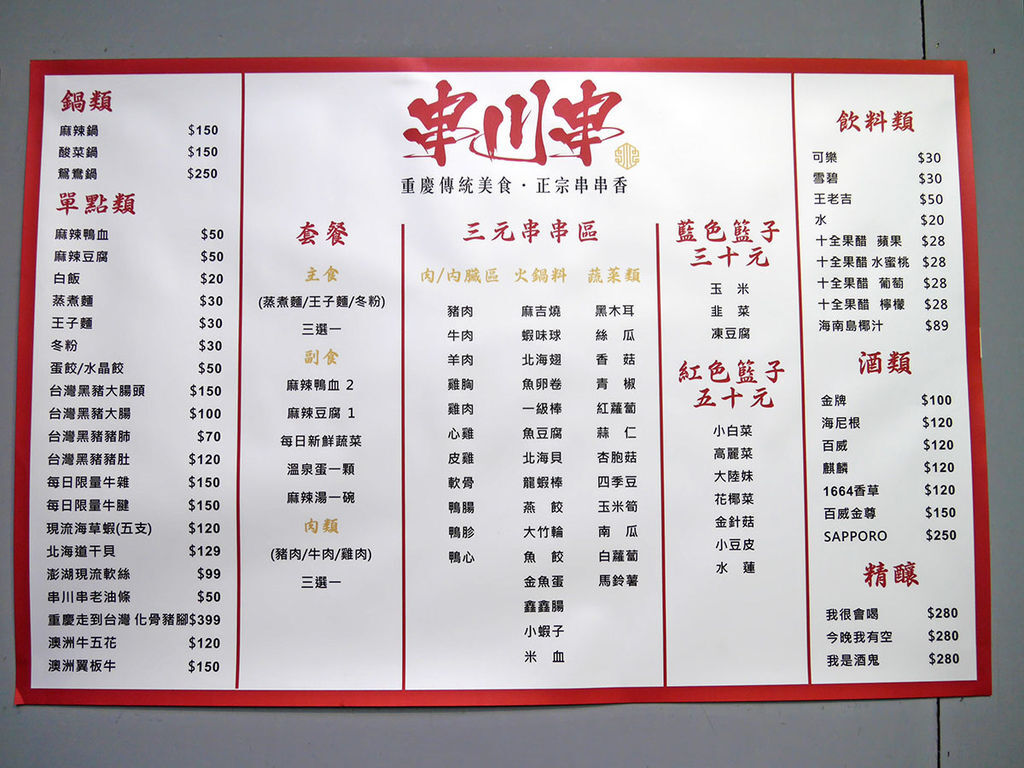 鍋類
麻辣鍋 $150
酸菜鍋 $150
鴛鴦鍋 $250
單點類
麻辣鴨血 $50
麻辣豆腐 $50
白飯 $20
蒸煮麵 $30
王子麵 $30
冬粉 $30
蛋餃/水晶餃 $50
台灣黑豬大腸頭 $150
台灣黑豬大腸 $100
台灣黑豬豬肺 $70
台灣黑豬豬肚 $120
每日限量牛雜 $150
每日限量牛腱 $150
現流海草蝦(五支) $120
北海道干貝 $129
澎湖現流軟絲 $99
串川串老油條 $50
重慶走到台灣 化骨豬腳$399
澳洲牛五花 $120
澳洲翼板牛 $150
串川串
重慶傳統美食・正宗串串香
套餐
主食
(蒸煮麵/王子麵/冬粉)
三選一
副食
麻辣鴨血 2
麻辣豆腐 1
每日新鮮蔬菜
溫泉蛋一顆
麻辣湯一碗
肉類
(豬肉/牛肉/雞肉)
三選一
三元串串區
肉/內臟區 火鍋料 蔬菜類
豬肉 麻吉燒 黑木耳
牛肉 蝦味球 絲 瓜
羊肉 北海翅 香 菇
雞胸 魚卵卷 青 椒
雞肉 一級棒 紅蘿蔔
心雞 魚豆腐 蒜 仁
皮雞 北海貝 杏胞菇
軟骨 龍蝦棒 四季豆
鴨腸 燕 餃 玉米筍
鴨胗 大竹輪 南 瓜
鴨心 魚 餃 白蘿蔔
金魚蛋 馬鈴薯
鑫鑫腸
小蝦子
米 血
藍色籃子
三十元
玉 米
韭 菜
凍豆腐
紅色籃子
五十元
小白菜
高麗菜
大陸妹
花椰菜
金針菇
小豆皮
水 蓮
飲料類
可樂 $30
雪碧 $30
王老吉 $50
水 $20
十全果醋 蘋果 $28
十全果醋 水蜜桃 $28
十全果醋 葡萄 $28
十全果醋 檸檬 $28
海南島椰汁 $89
酒類
金牌 $100
海尼根 $120
百威 $120
麒麟 $120
1664香草 $120
百威金尊 $150
SAPPORO $250
精釀
我很會喝 $280
今晚我有空 $280
我是酒鬼 $280